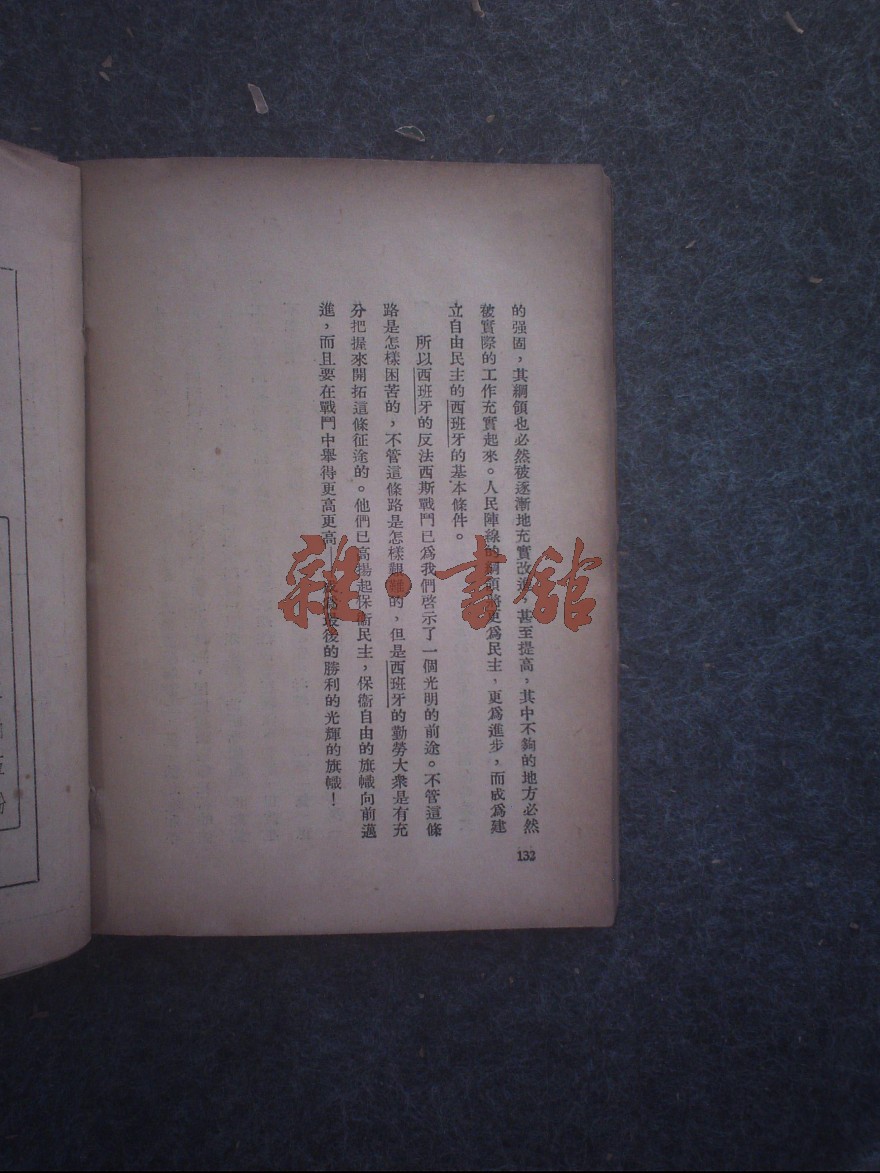 的强固，其綱領也必然被逐漸地充實改進，甚至提高，其中不夠的地方必然
被實際的工作充實起來。人民陣線的綱領將更爲民主，更爲進步，而成爲建
立自由民主的西班牙的基本條件。
所以西班牙的反法西斯戰鬥已爲我們啓示了一個光明的前途。不管這條
路是怎樣困苦的，不管這條路是怎樣艱難的，但是西班牙的勤勞大衆是有充
分把握來開拓這條征途的。他們已高揚起保衞民主，保衞自由的旗幟向前邁
進，而且要在戰鬥中舉得更高更高——最後的勝利的光輝的旗幟！
132
雜·書館
份